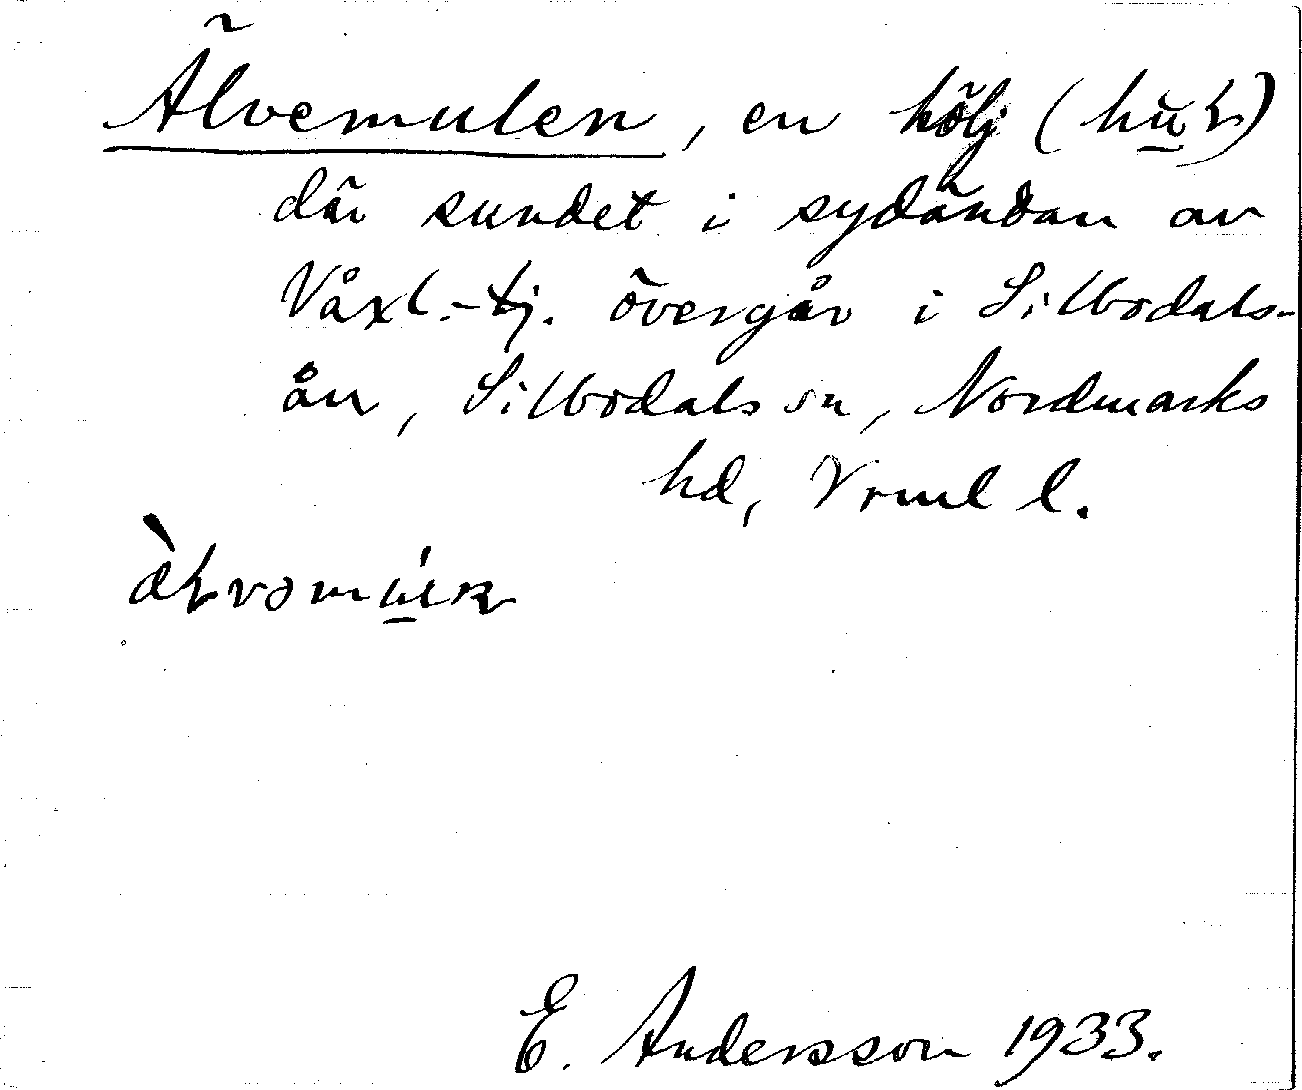 Älvemulen, en hölj (hu̱ɽ)
där sundet i sydändan av
Våxl.-tj. övergår i Silbodals-
ån, Silbodals sn, Nordmarks
hd, Vrml l.
E. Andersson 1933.